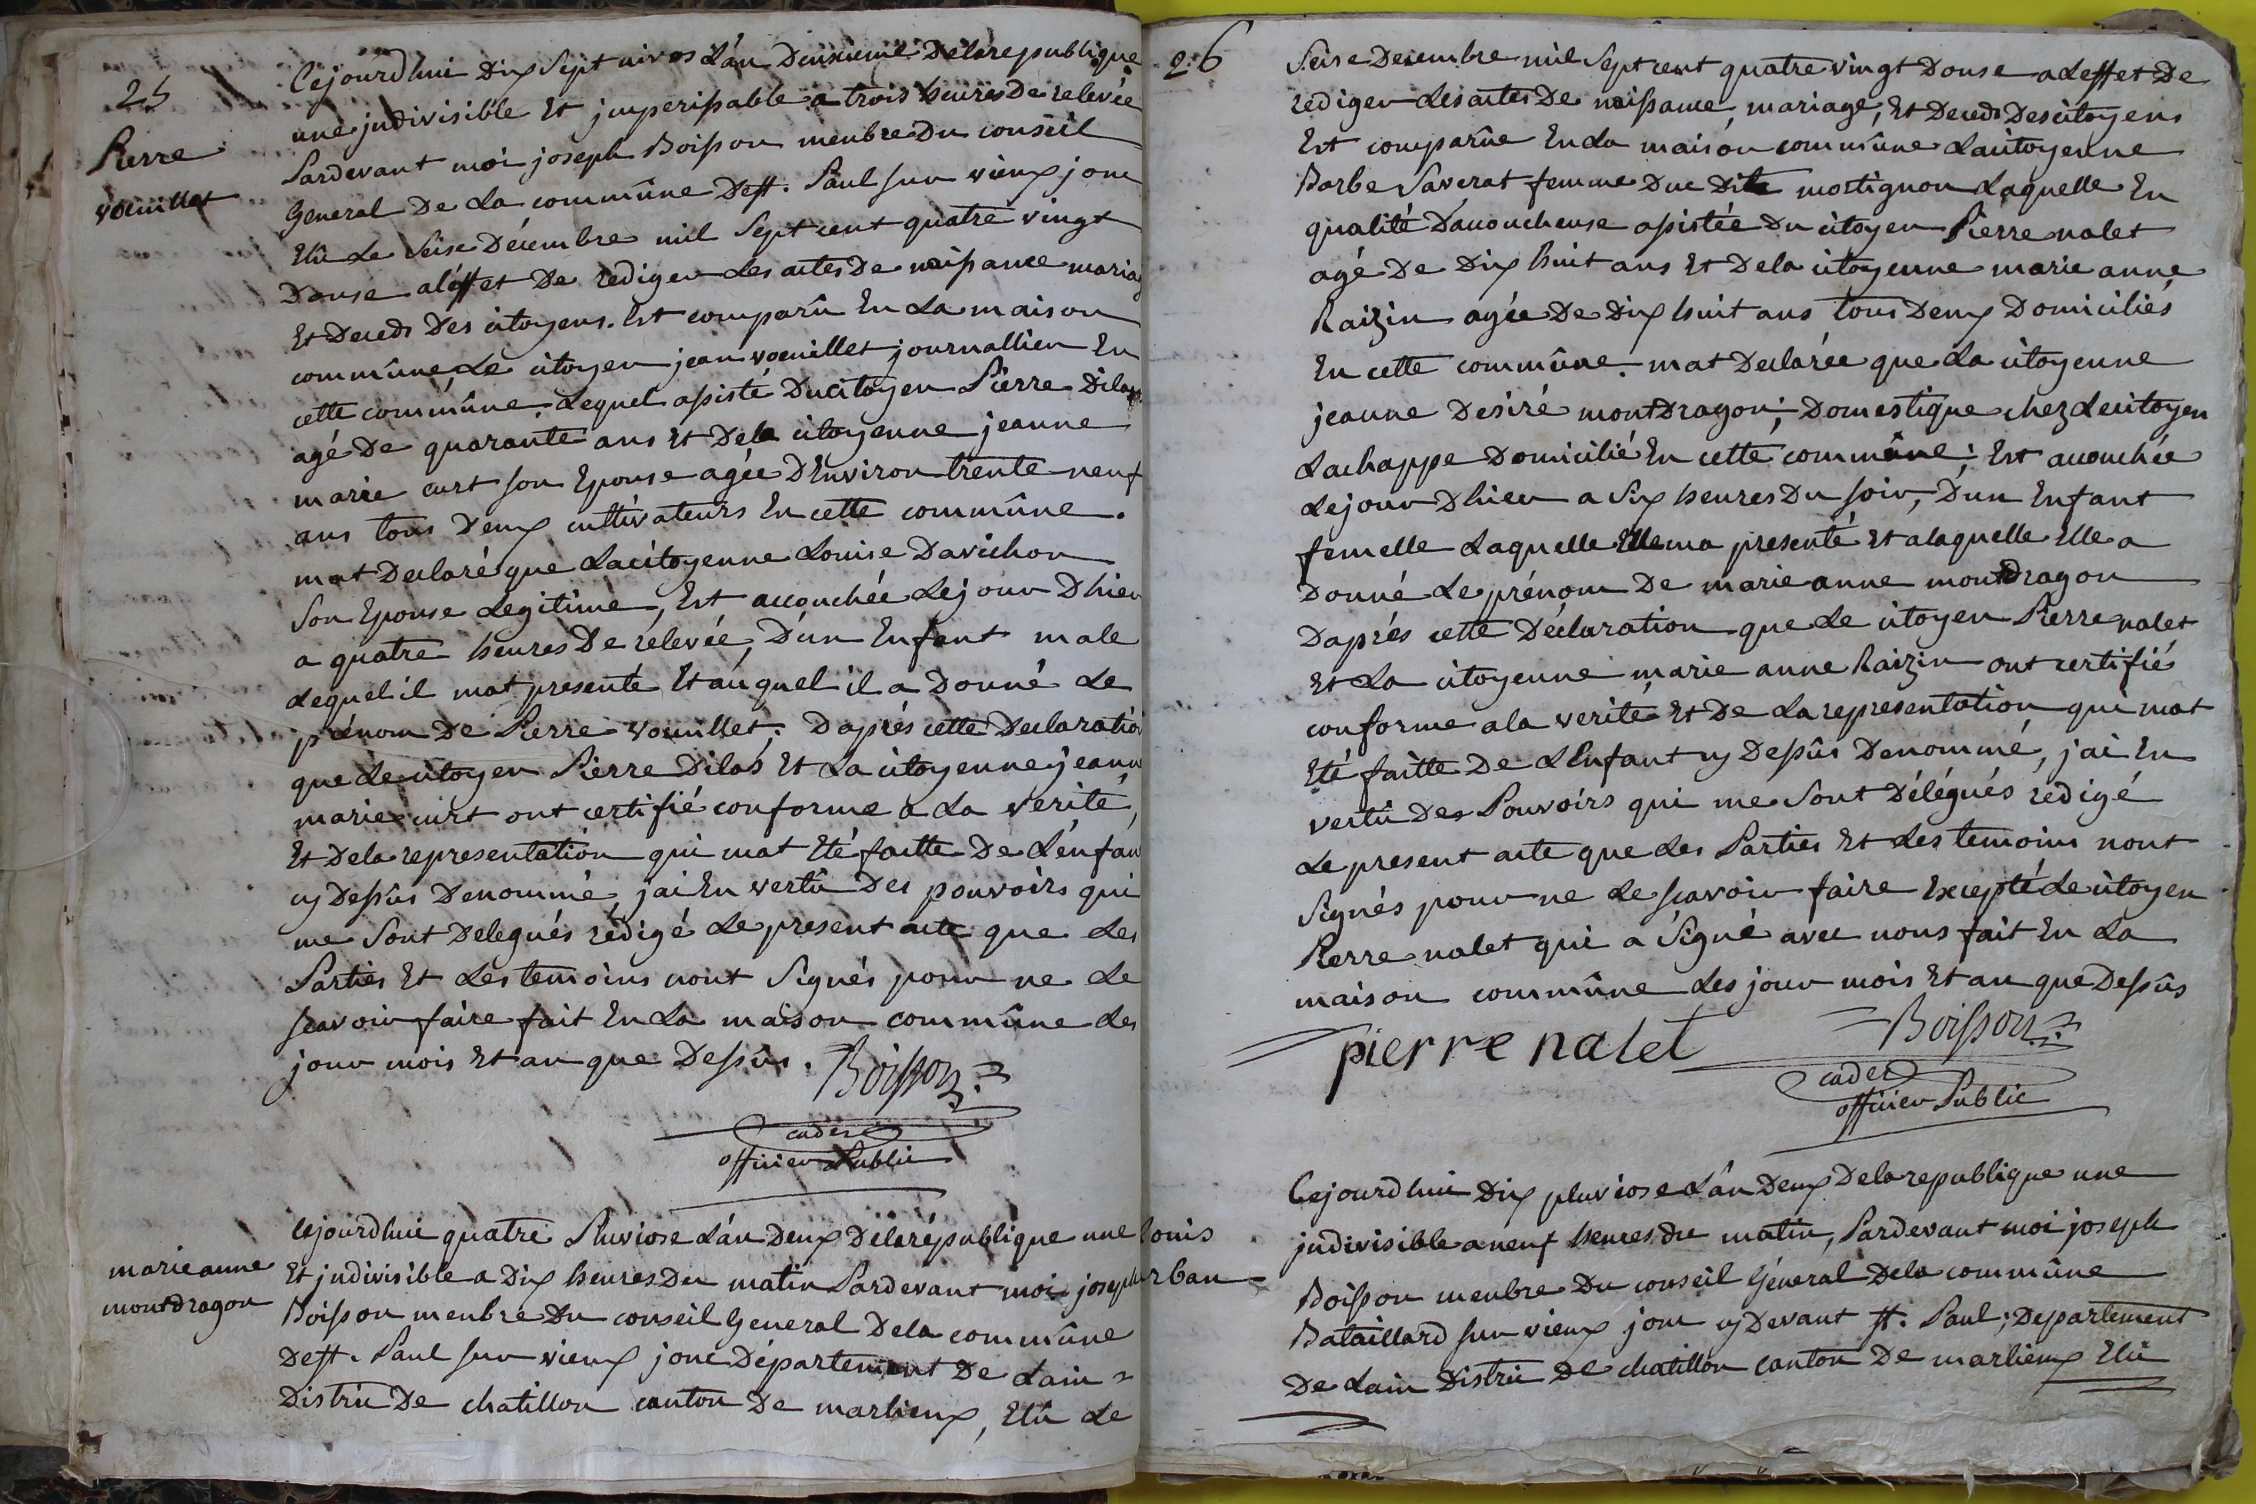 25
Pierre
vouillet
Cejourdhui Dix Sept nivos L'an Deuxieme Delarepublique
une judivisible Et jmperissable a trois heures De relevée
Pardevant moi joseph Boisson menbre Du conseil
General De La commûne Dest. Paul sur vieux jonc
Elû Le Seise Décembre mil Sept cent quatre vingt
Douse aléffet De rediger Les actes De naissance mariag
Et Deceds Des citoyens. Est comparû En La maison
commûne Le citoyen jean vouillet journallier En
cette commûne, Lequel assisté Ducitoyen Pierre Dilas
agé De quarante ans Et Dela citoyenne jeanne
marie curt son Epouse agée D'Environ trente neuf
ans tous Deux cultivateurs En cette commûne.
mat Declaré que Lacitoyenne Louise Davichon
Son Epouse Legitime, Est accouchée Lejour Dhier
a quatre heures De rélevée, D'un Enfant male
Lequel il mat presenté Et auquel il a Donné Le
prénom De Pierre vouillet; Daprés cette Declaratio
que Lecitoyen Pierre Dilas Et La citoyenne jeann
marie curt ont certifié conforme a La verité,
Et Dela representation qui mat Eté faitte De L'énfan
cy Dessûs Denommé, jai En vertû Des pouvoirs qui
me Sont Delegués rédigé Le present acte que Les
Parties Et Les temoins nont Signés pour ne Le
scavoir faire fait En La maison commûne Les
jour mois Et an que Dessûs.
Boisson
cadet
officier Public
marie anne
montdragon
Cejourdhui quatre Pluviose L'an Deux Delarépublique une
Et judivisible a Dix heures Du matin Pardevant moi joseph
Boisson menbre Du conseil General Dela commûne
Dest. Paul sur vieux jonc Département De Lain
Distric De chatillon canton De marlieux, Elû Le
26
Seise Decembre mil Sept cent quatre vingt Douse a Leffet De
rediger Les actes De naissance, mariage, Et Deceds Des citoyens
Est comparûe En La maison commûne Lacitoyenne
Barbe Saverat femme Duc Dite mortignon Laquelle En
qualité D'accoucheuse assistée Du citoyen Pierre nalet
agé De Dix huit ans Et Dela citoyenne marie anne
Raizin agée De Dix huit ans tous Deux Domiciliés
En cette commûne. mat Declarée que La citoyenne
jeanne Desiré montDragon; Domestique chez Lecitoyen
Lachappe Domicilié En cette commûne; Est accouchée
Lejour Dhier a Six heures Du soir, D'un Enfant
femelle Laquelle Elle ma presenté Et alaquelle Elle a
Donné Le prénom De marie anne montdragon
Daprés cette Déclaration que Le citoyen Pierre nalet
Et La citoyenne marie anne Raizin ont certifiés
conforme ala verité Et De Larepresentation qui mat
Eté faitte De L'Enfant cy Dessûs Denommé, jai En
vertû Des Pouvoirs qui me Sont Délégués rédigé
Le present acte que Les Parties Et Les temoins nont
Signés pour ne Le scavoir faire Excepté Le citoyen
Pierre nalet qui a Signé avec nous fait En La
maison commûne Les jour mois Et an que Dessûs
pierre nalet
Boisson
cadet
officier Public
Louis
urban
Cejourdhui Dix pluviose L'an Deux Delarepublique une
judivisible aneuf heures du matin, Pardevant moi joseph
Boisson menbre Du conseil Général Dela commûne
Bataillard sur vieux jonc cy Devant st. Paul; Departement
De Lain Distric De chatillon canton De marlieux Elû